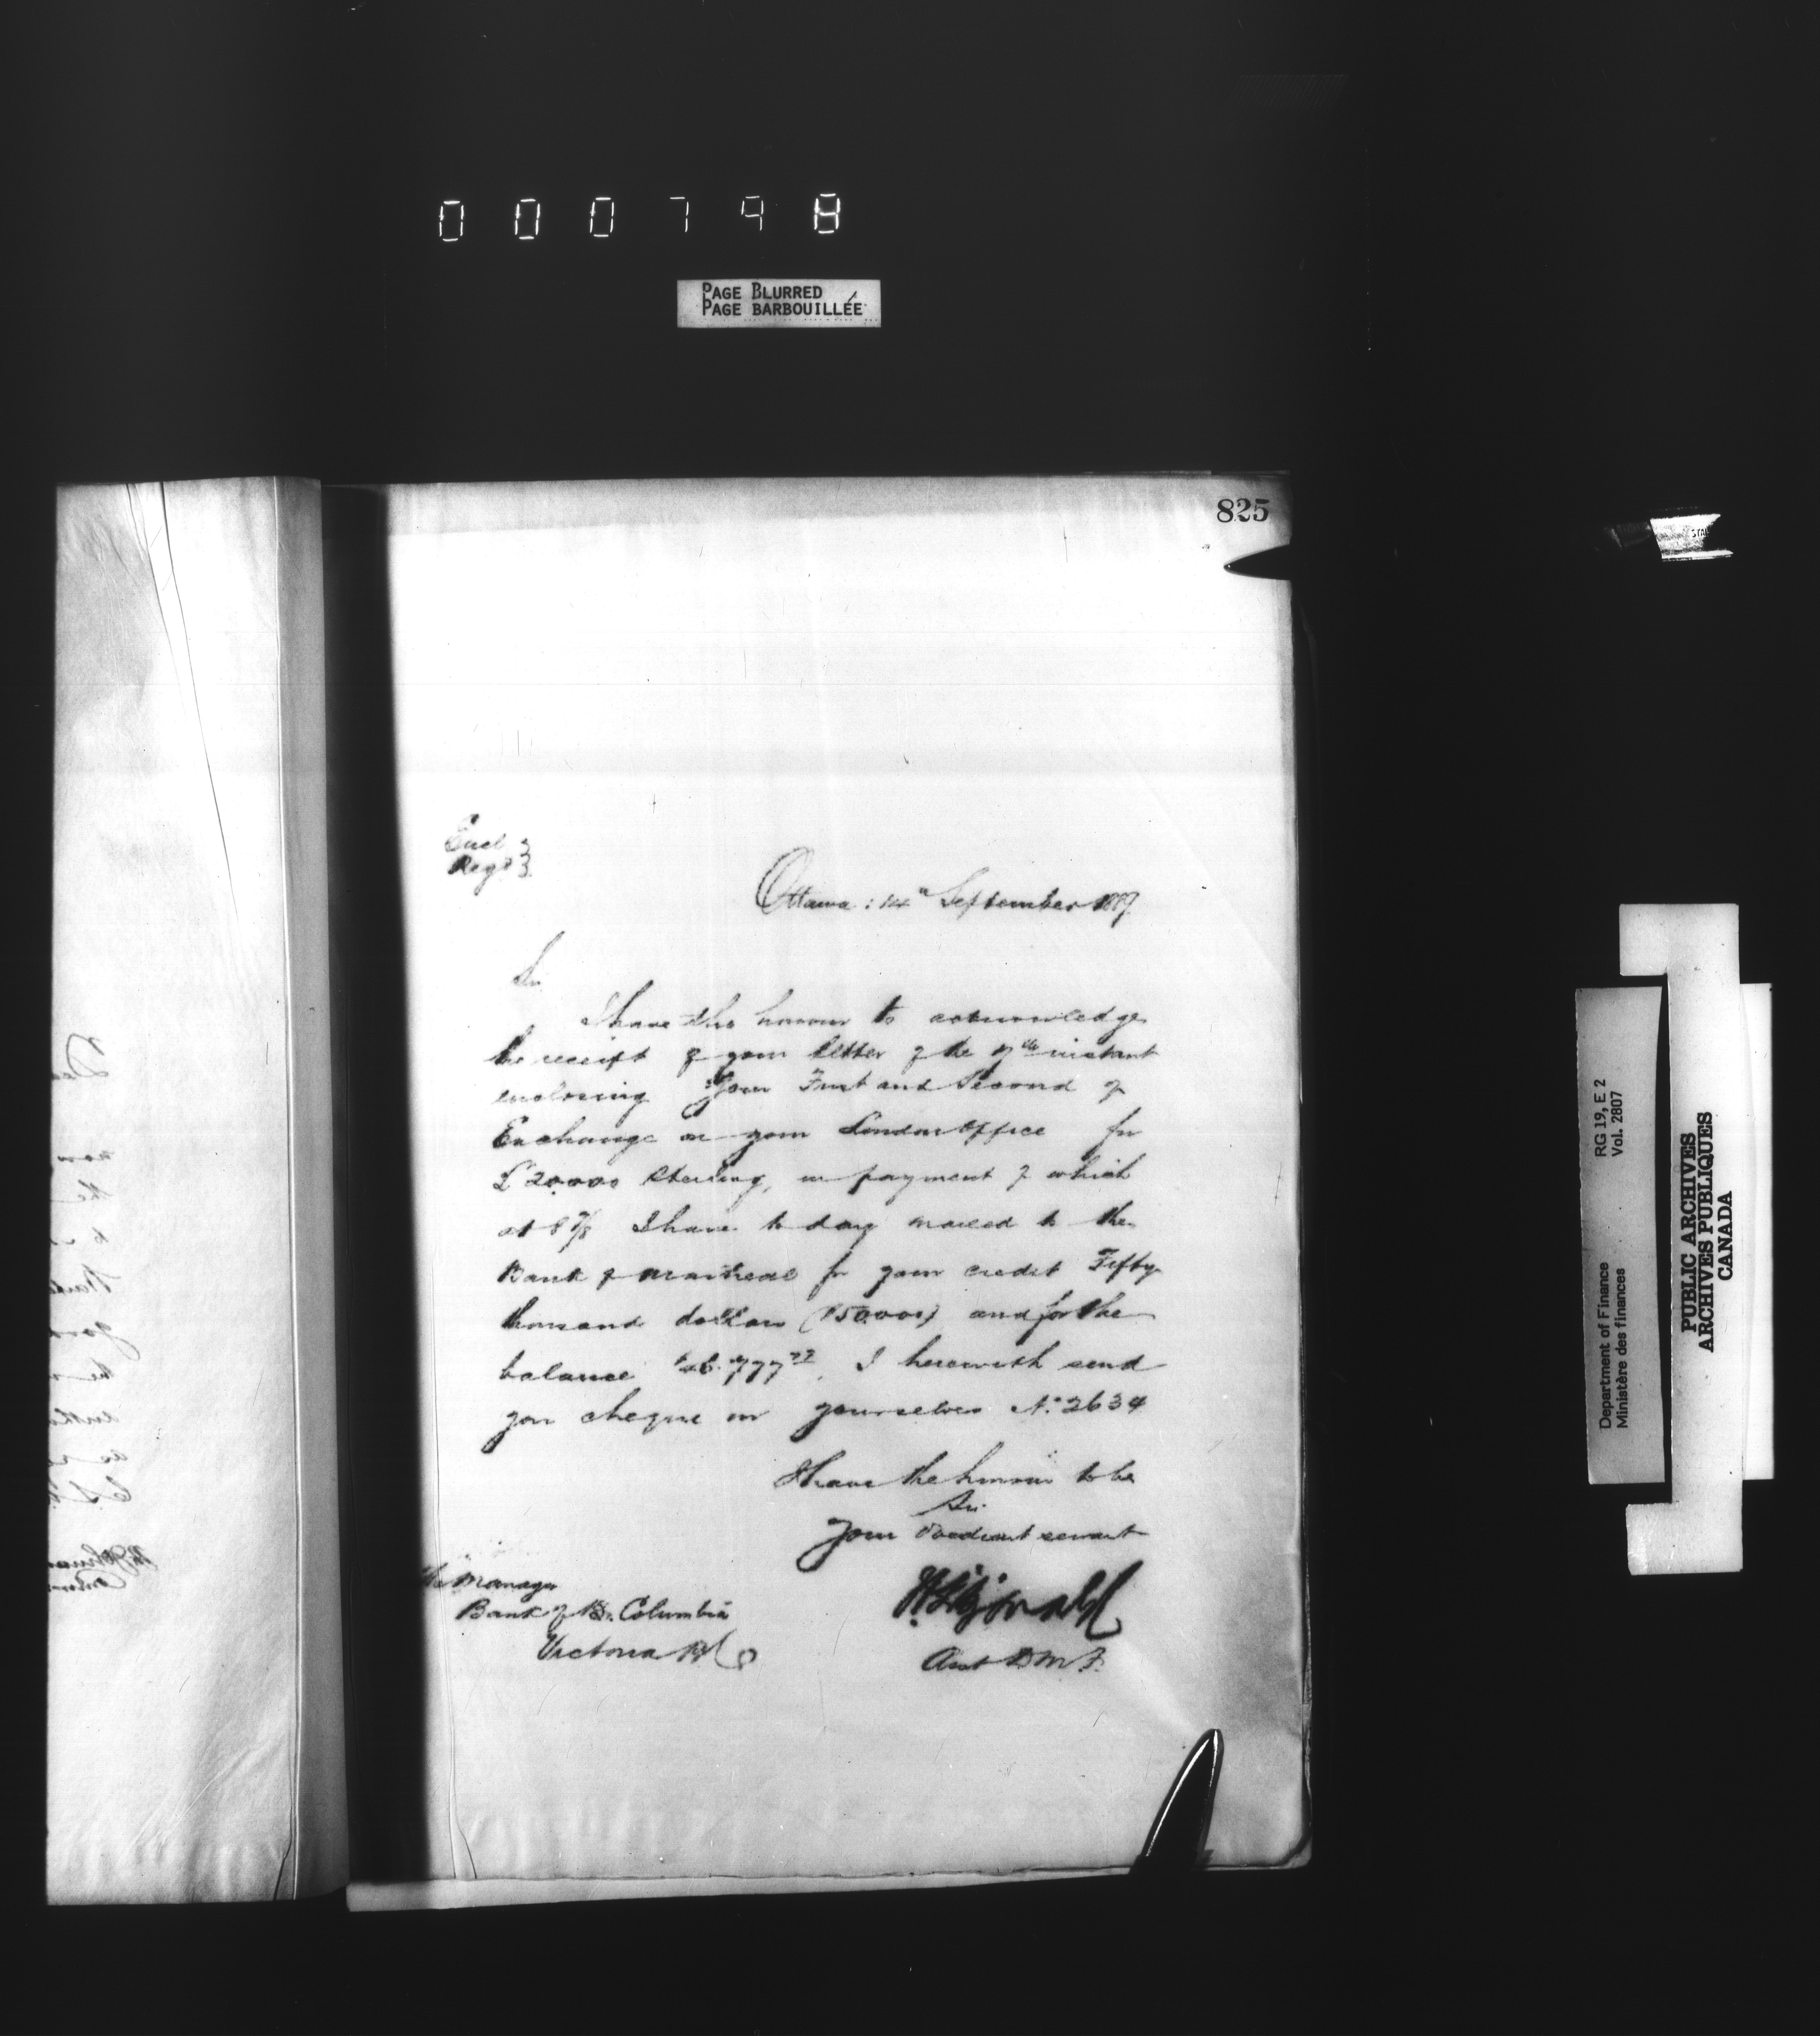 000798
PAGE BLURRED
PAGE BARBOUILLÉE
825
Encl
Regd
Ottawa: 14th September 1887
Sir
I have the honour to acknowledge
the receipt of your letter of the 7th instant
enclosing your First and Second of
Exchange on your London Office for
£20,000 Sterling, in payment of which
at 8 7/8 I have to day mailed to the
Bank of Montreal for your credit Fifty
thousand dollars ($50,000) and for the
balance 777 77, I herewith send
you cheque on yourselves No. 2634
I have the honour to be
Sir
Your obedient servant
Asst D M F.
The Manager
Bank of Br. Columbia
Victoria BC
RG 19, E 2
Vol. 2807
Department of Finance
Ministère des finances
PUBLIC ARCHIVES
ARCHIVES PUBLIQUES
CANADA